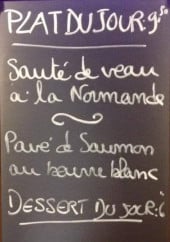 PLAT DU JOUR: 9.50
Sauté de veau
a la Normande
~
Pavé d Saumon
au beurre blanc
DESSERT DU JOUR: